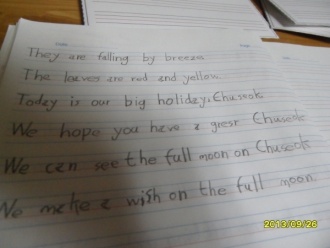 They are falling by breeze.
The leaves are red and yellow.
Today is our big holiday, Chuseok.
We hope you have a great Chuseok
We can see the full moon on Chuseok
We make a wish on the full moon.
2013/09/26